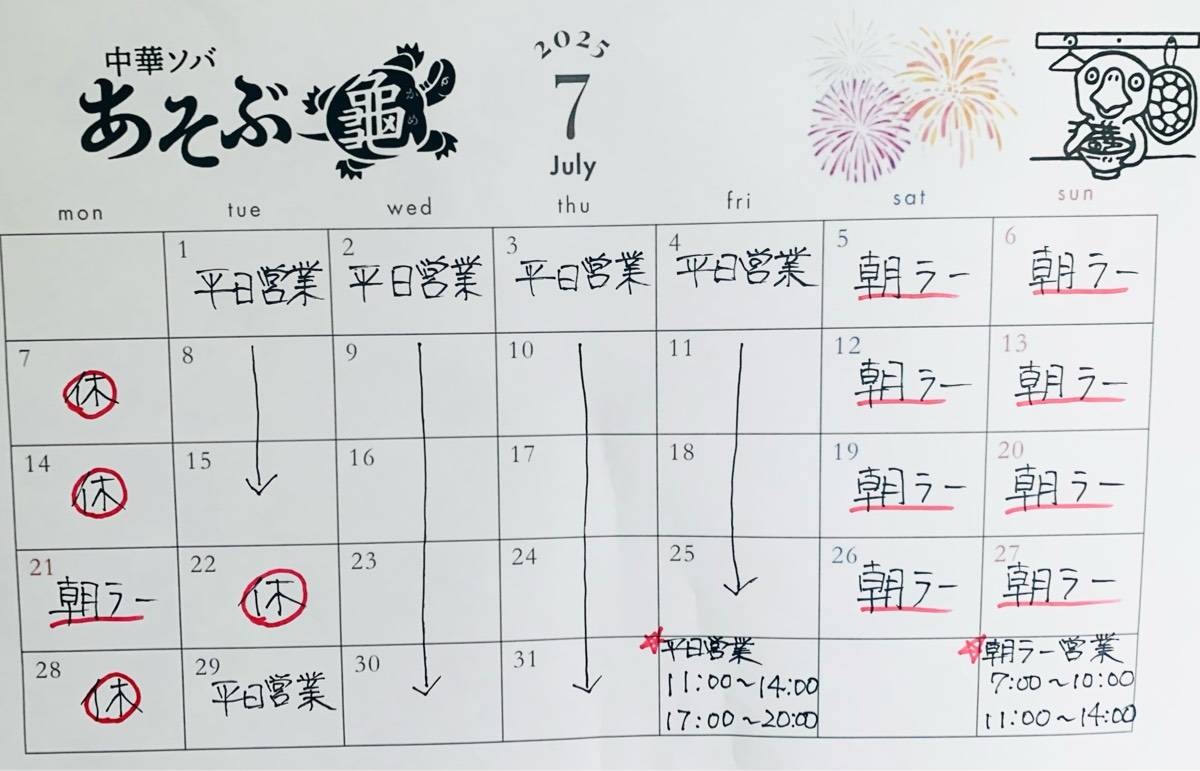 中華ソバ
あそぶ龜
かめ
2025
7
July
mon tue wed thu fri sat sun
1 2 3 4 5 6
平日営業 平日営業 平日営業 平日営業 朝ラー 朝ラー
7 8 9 10 11 12 13
休 朝ラー 朝ラー
14 15 16 17 18 19 20
休 朝ラー 朝ラー
21 22 23 24 25 26 27
朝ラー 休 朝ラー 朝ラー
28 29 30 31
休 平日営業
☆平日営業
11:00~14:00
17:00~20:00
☆朝ラー営業
7:00~10:00
11:00~14:00